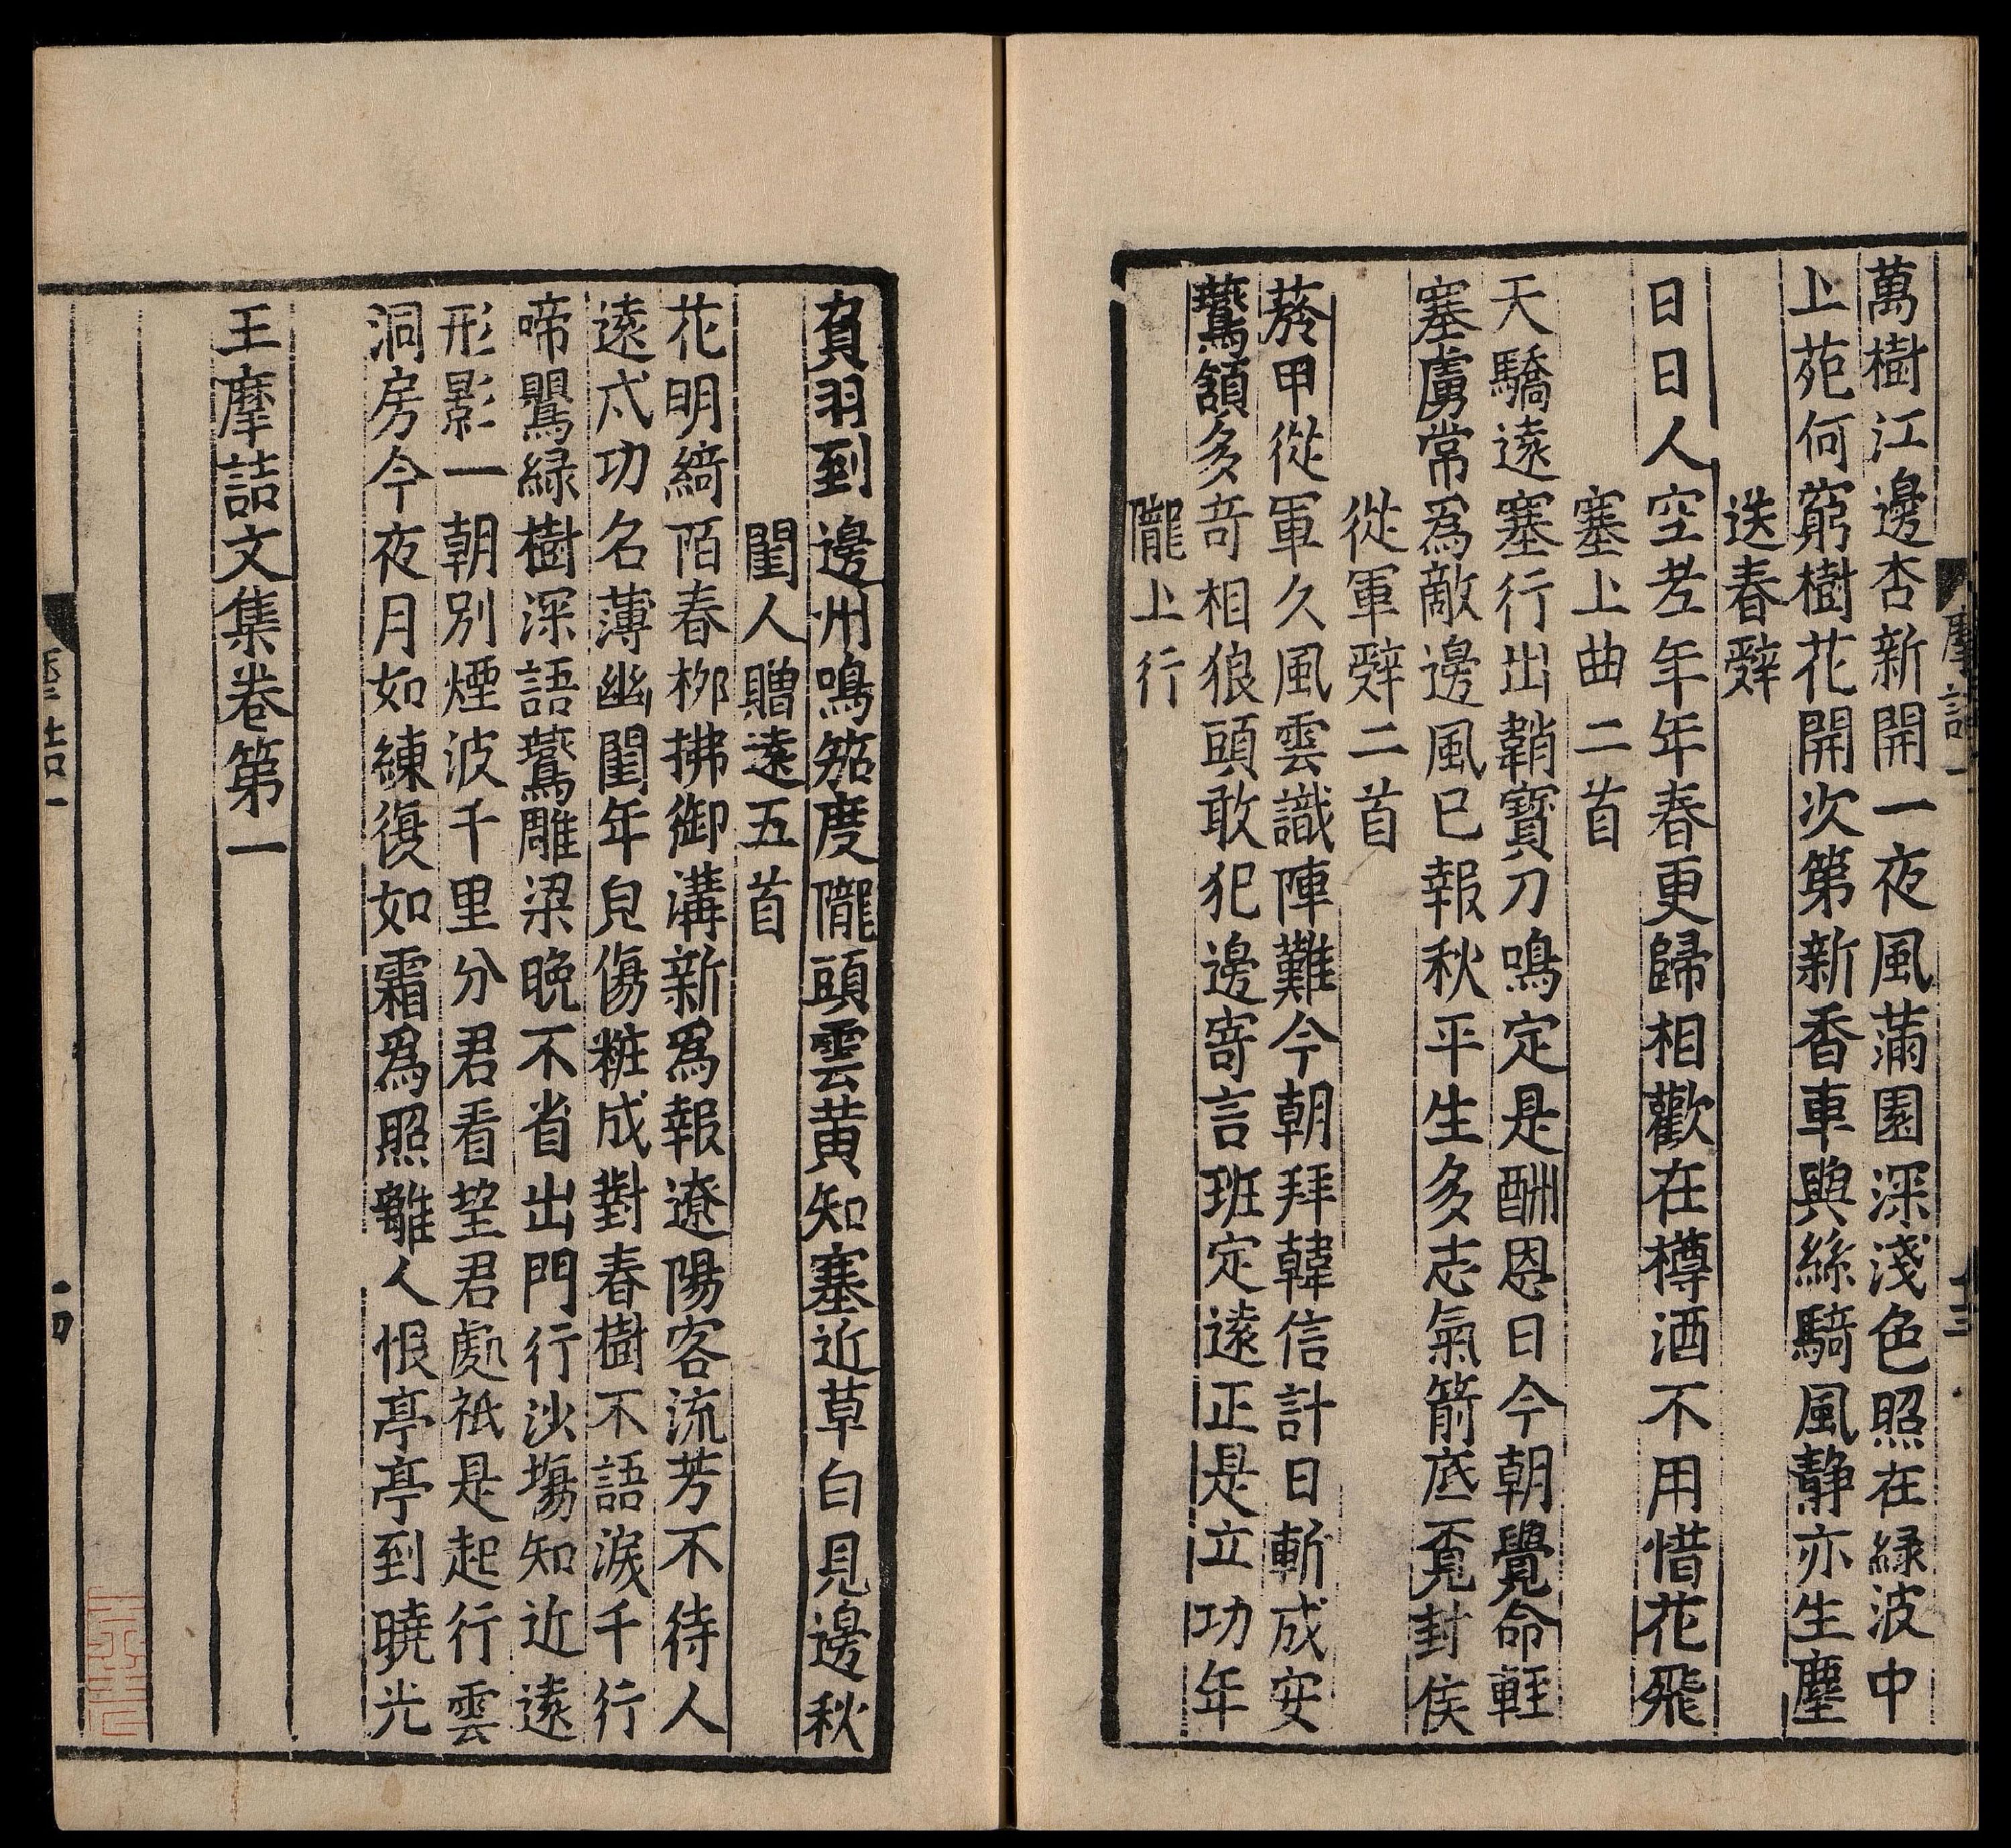 萬樹江邊杏新開一夜風滿園深淺色照在緑波中
上苑何窮樹花開次第新香車與絲騎風静亦生塵
送春辭
日日人空老年年春更歸相歡在樽酒不用惜花飛
塞上曲二首
天驕遠塞行出鞘寳刀鳴定是酬恩日今朝覺命輕
塞虜常爲敵邊風已報秋平生多志氣箭底覔封侯
從軍辭二首
䓤甲從軍久風雲識陣難今朝拜韓信計日斬成安
鷰頷多奇相狼頭敢犯邊寄言班定遠正是立功年
隴上行
摩詰一
十三
負羽到邊州鳴笳度隴頭雲黄知塞近草白見邊秋
閨人贈遠五首
花明綺陌春栁拂御溝新爲報遼陽客流芳不待人
遠戍功名薄幽閨年皃傷粧成對春樹不語淚千行
啼鸎緑樹深語鷰雕梁晚不省出門行沙塲知近遠
形影一朝別煙波千里分君看望君處祇是起行雲
洞房今夜月如練復如霜爲照離人恨亭亭到曉光
王摩詰文集卷第一
摩詰一
十四